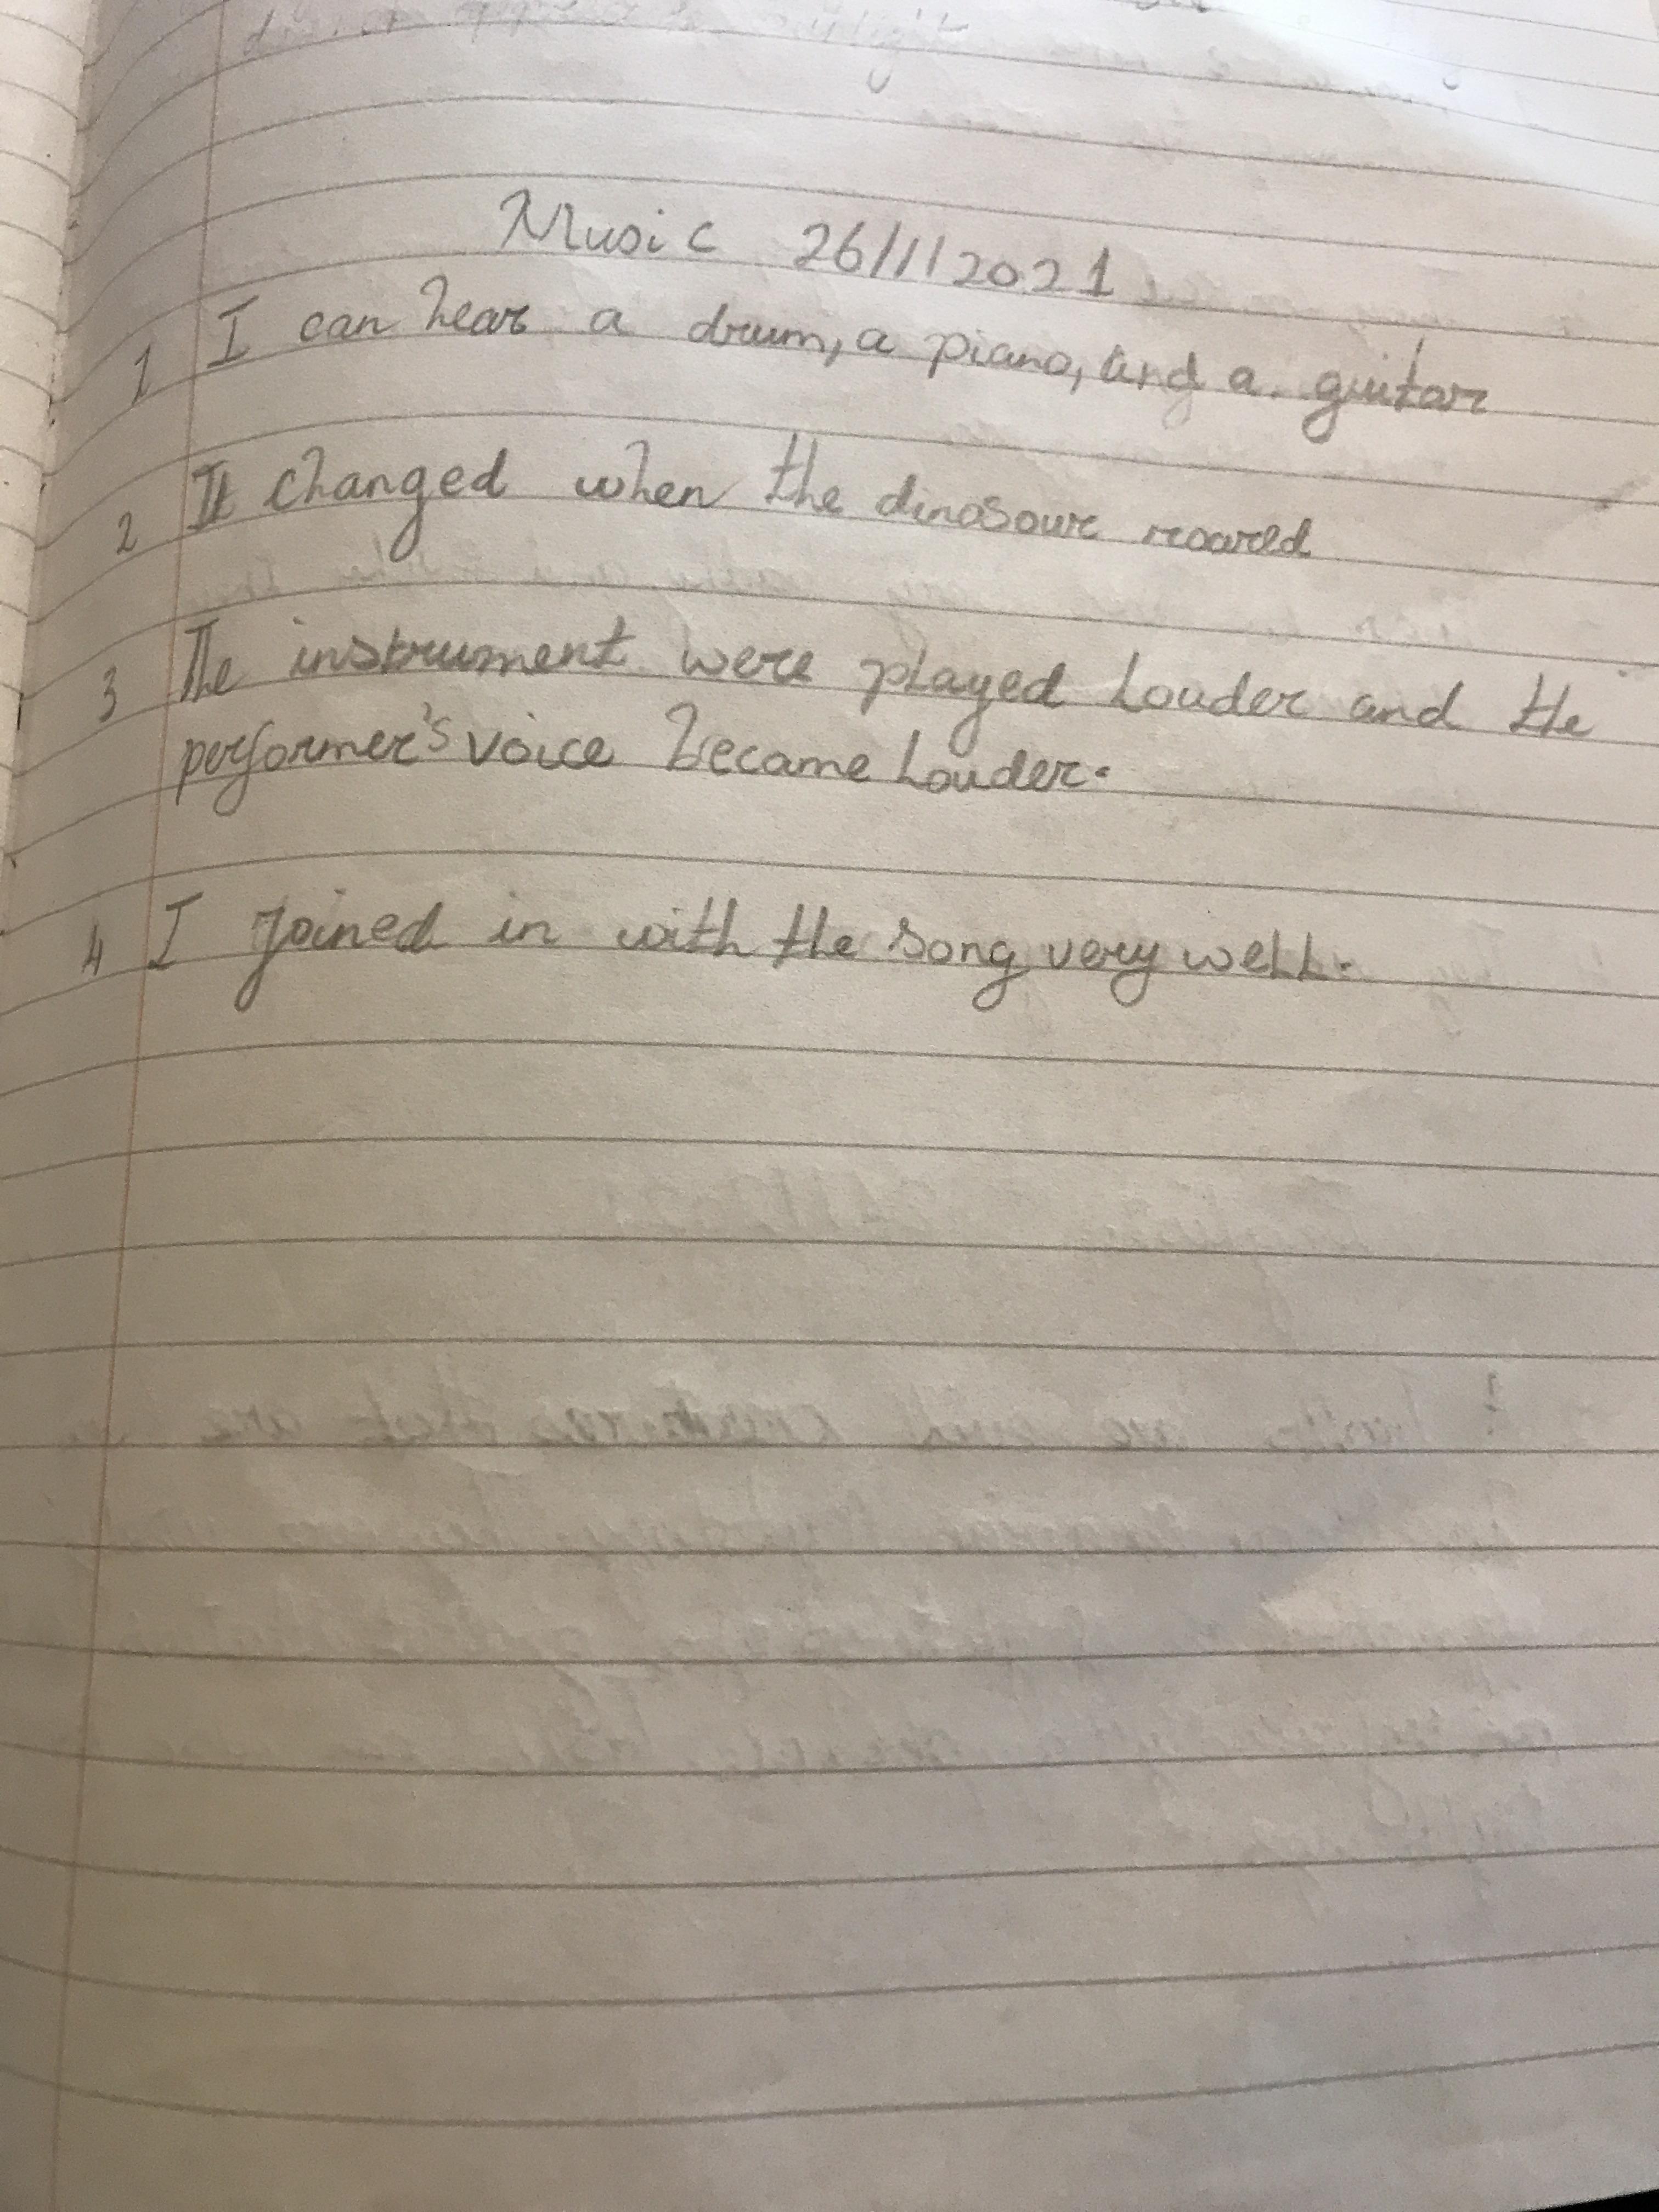 Music 26/11 2021
1 I can hear a drum, a piano, and a guitar
2 It changed when the dinosour roared
3 The instrument were played louder and the
performer's voice became louder.
4 I joined in with the song very well.